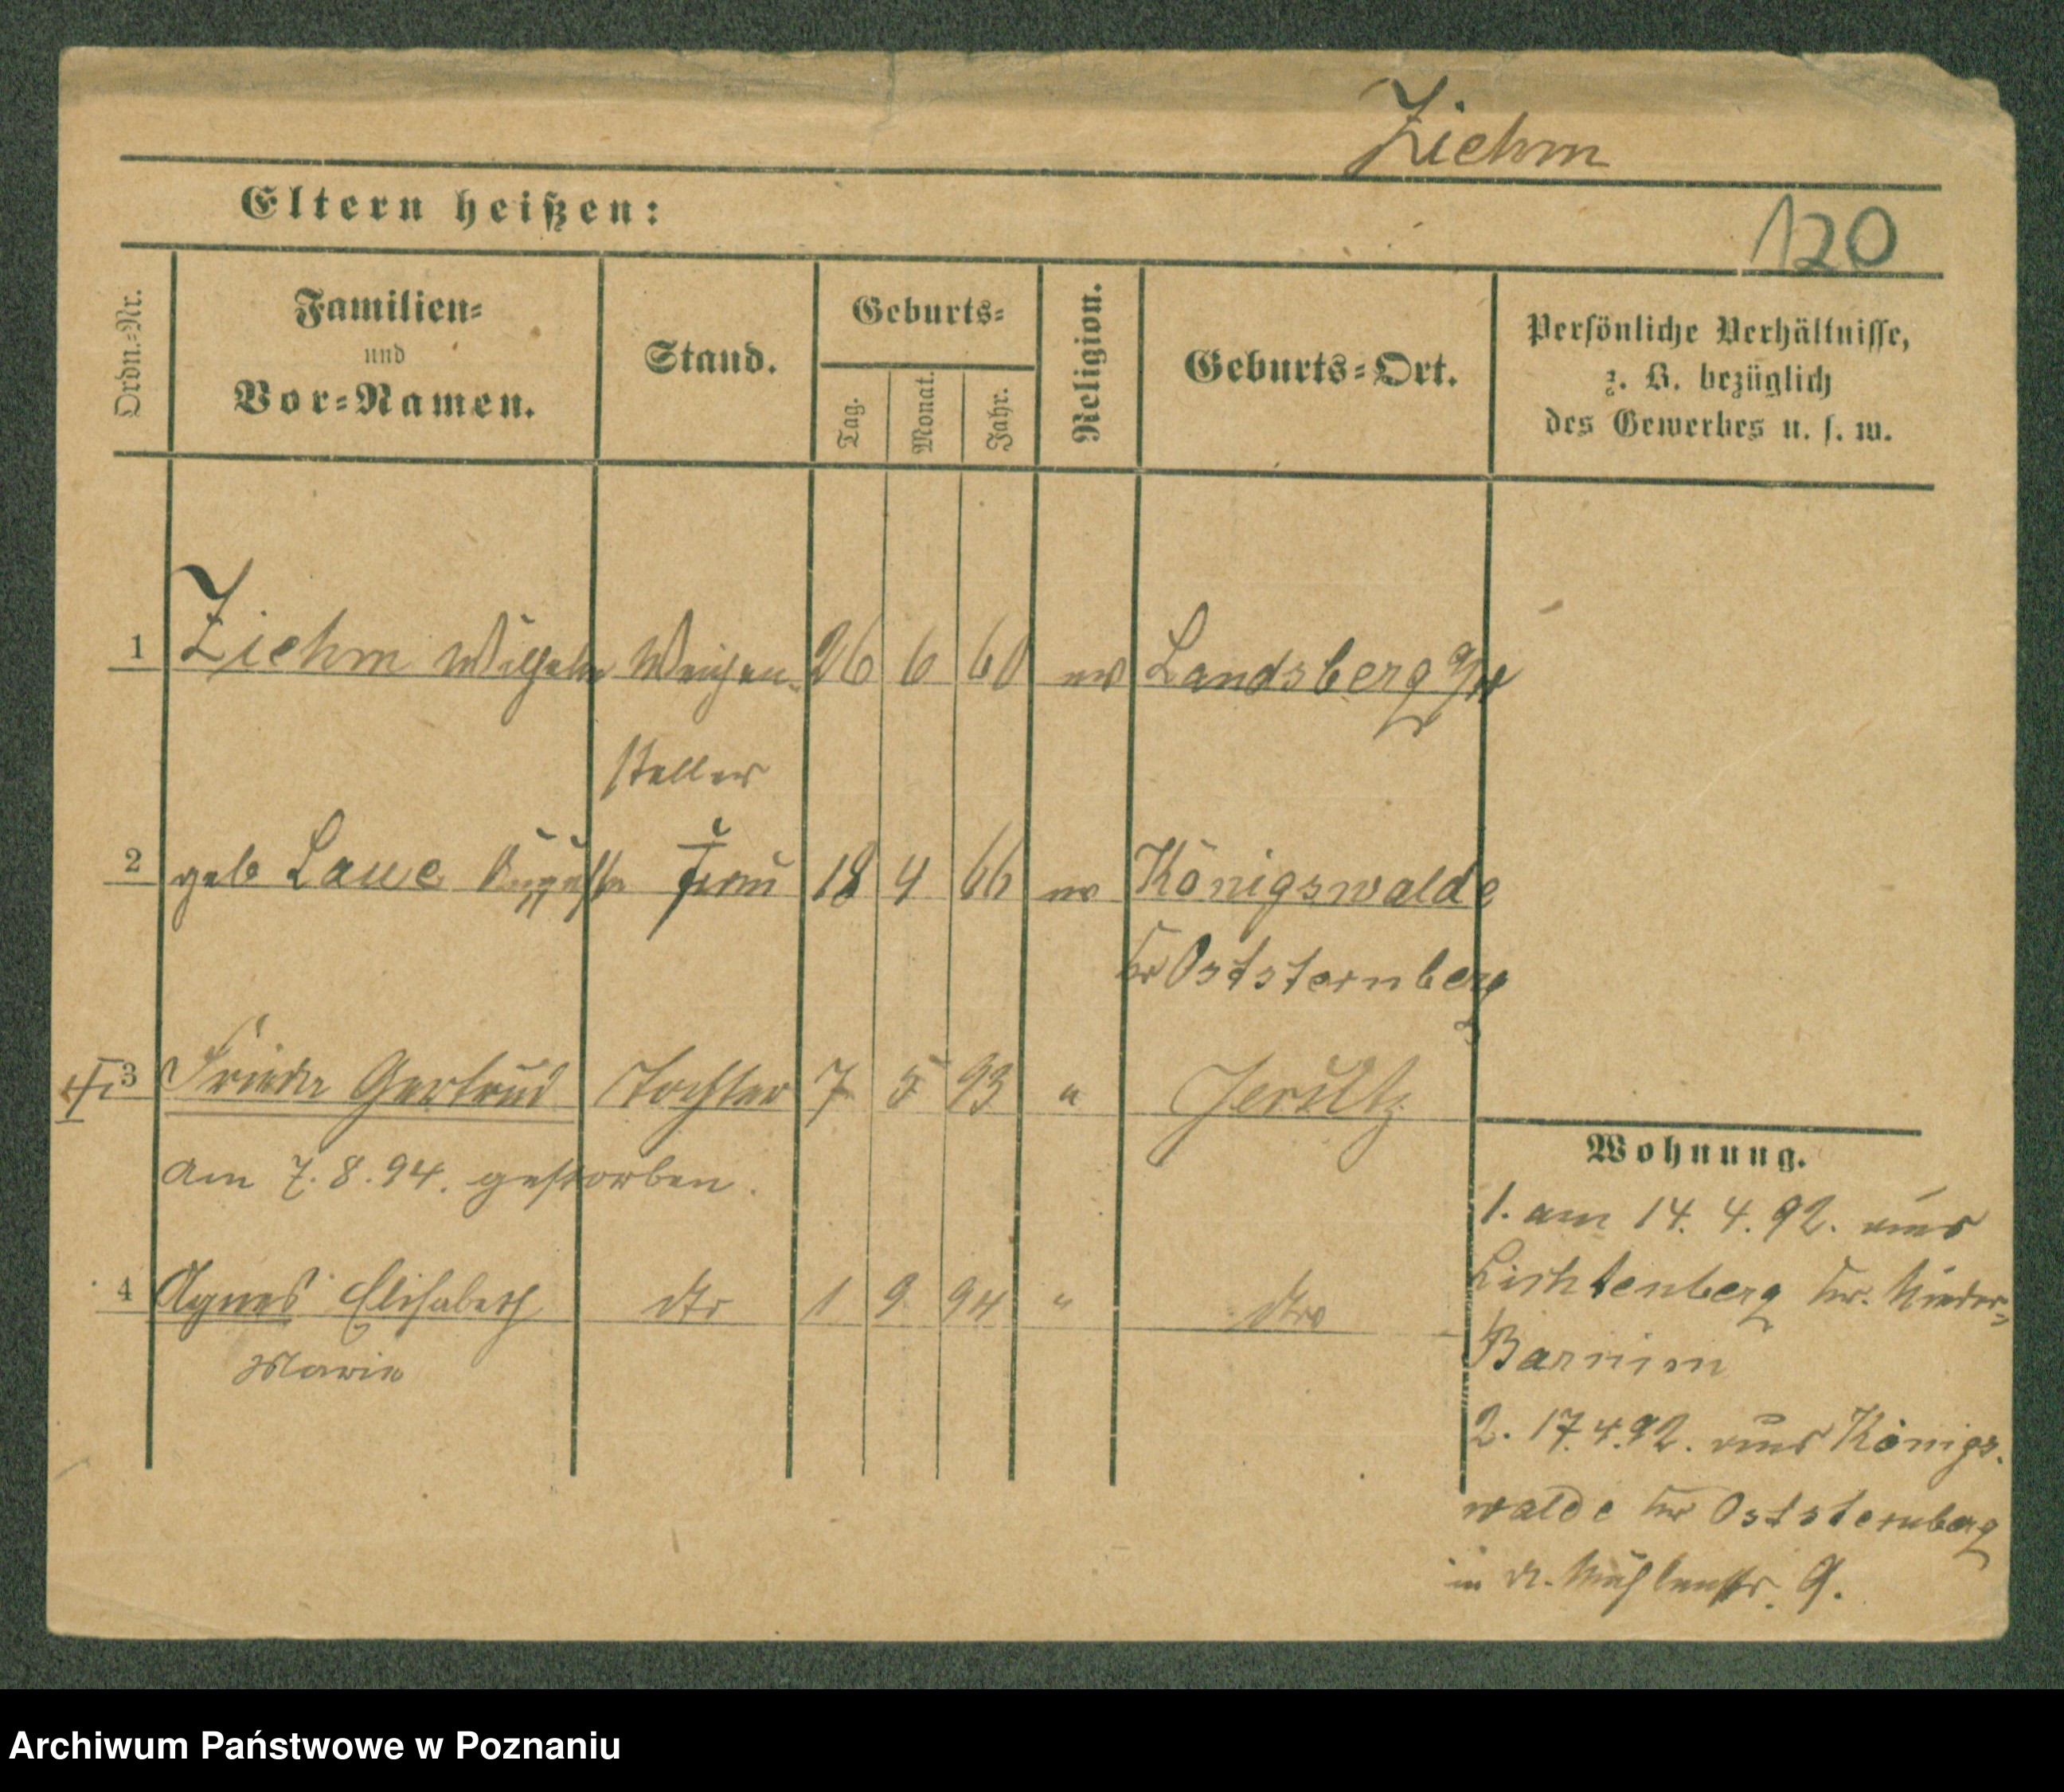 Ziehm
Eltern heißen:
120
Ordn.-Nr.
Familien-
und
Vor-Namen.
Stand.
Geburts-
Tag.
Monat.
Jahr.
Religion.
Geburts-Ort.
Persönliche Verhältnisse,
z. B. bezüglich
des Gewerbes u. s. w.
1 Ziehm Wilhelm Weichen- 26 6 60 ev Landsberg a/W
steller
2 geb Laue Auguste Frau 18 4 66 ev Königswalde
Kr Oststernberg
3 Frieda Gertrud Tochter 7 5 93 " Jersitz
am 7.8.94. gestorben.
4 Agnes Elisabeth dto 1 9 94 " dto
Marie
Wohnung.
1. am 14.4.92. aus
Lichtenberg Kr. Nieder-
Barnim
2. 17.4.92. aus Königs-
walde Kr Oststernberg
in Mühlenstr. 9.
Archiwum Państwowe w Poznaniu